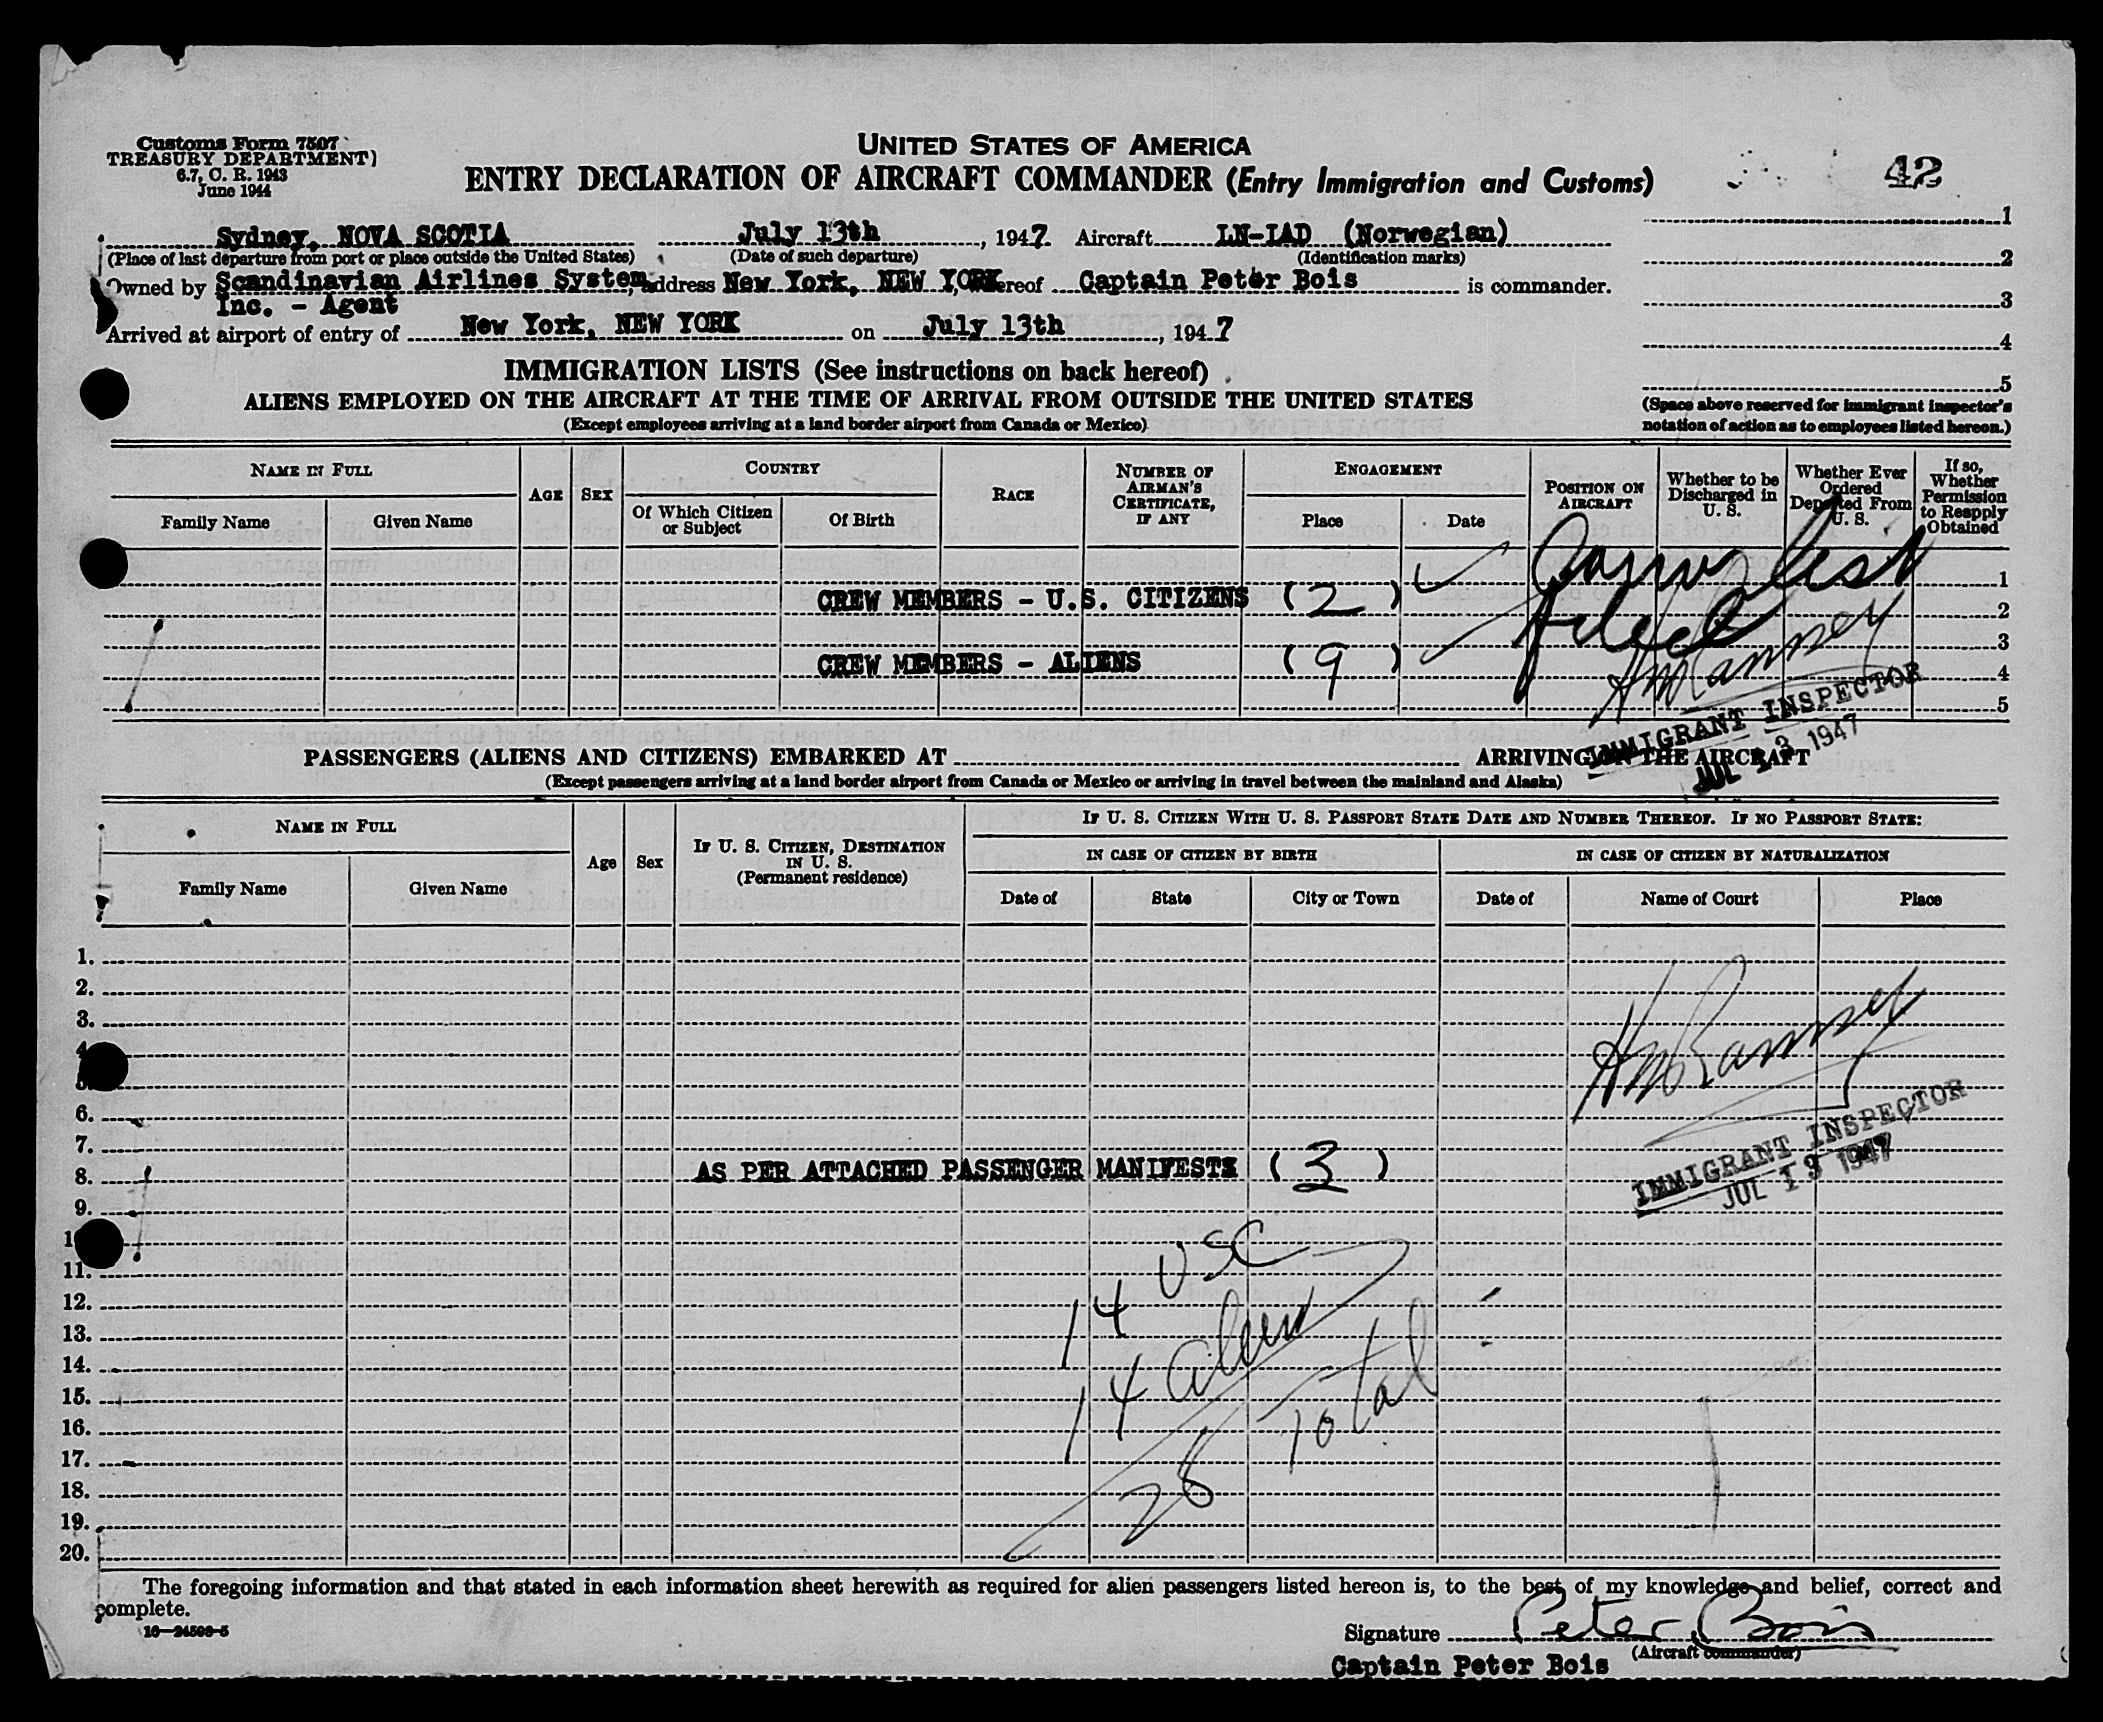 Customs Form 7507
TREASURY DEPARTMENT
6.7, C. R. 1943
June 1944
UNITED STATES OF AMERICA
ENTRY DECLARATION OF AIRCRAFT COMMANDER (Entry Immigration and Customs)
42
Sydney, NOVA SCOTIA July 13th, 1947. Aircraft LN-IAD (Norwegian)
(Place of last departure from port or place outside the United States) (Date of such departure) (Identification marks)
Owned by Scandinavian Airlines System, address New York, NEW YORK, whereof Captain Peter Bois is commander.
Inc. - Agent
Arrived at airport of entry of New York, NEW YORK on July 13th, 1947
1
2
3
4
5
(Space above reserved for immigrant inspector's
notation of action as to employees listed hereon.)
IMMIGRATION LISTS (See instructions on back hereof)
ALIENS EMPLOYED ON THE AIRCRAFT AT THE TIME OF ARRIVAL FROM OUTSIDE THE UNITED STATES
(Except employees arriving at a land border airport from Canada or Mexico)
NAME IN FULL
Family Name
Given Name
AGE
SEX
COUNTRY
Of Which Citizen or Subject
Of Birth
RACE
NUMBER OF AIRMAN'S CERTIFICATE, IF ANY
ENGAGEMENT
Place
Date
POSITION ON AIRCRAFT
Whether to be Discharged in U. S.
Whether Ever Ordered Deported From U. S.
If so, Whether Permission to Reapply Obtained
1
CREW MEMBERS - U.S. CITIZENS (2) 2
3
CREW MEMBERS - ALIENS (9) 4
5
list
filed
HMRamsey
IMMIGRANT INSPECTOR
JUL 13 1947
PASSENGERS (ALIENS AND CITIZENS) EMBARKED AT ARRIVING ON THE AIRCRAFT
(Except passengers arriving at a land border airport from Canada or Mexico or arriving in travel between the mainland and Alaska)
NAME IN FULL
Family Name
Given Name
Age
Sex
IF U. S. CITIZEN, DESTINATION IN U. S.
(Permanent residence)
IF U. S. CITIZEN WITH U. S. PASSPORT STATE DATE AND NUMBER THEREOF. IF NO PASSPORT STATE:
IN CASE OF CITIZEN BY BIRTH
IN CASE OF CITIZEN BY NATURALIZATION
Date of
State
City or Town
Date of
Name of Court
Place
1.
2.
3.
4
5.
6.
7.
8. AS PER ATTACHED PASSENGER MANIFESTS (3)
9.
1
11.
12.
13.
14.
15.
16.
17.
18.
19.
20.
HMRamsey
IMMIGRANT INSPECTOR
JUL 13 1947
14 USC
14 alien
28 Total
The foregoing information and that stated in each information sheet herewith as required for alien passengers listed hereon is, to the best of my knowledge and belief, correct and
complete.
16—24598-5
Signature Peter Bois
(Aircraft commander)
Captain Peter Bois